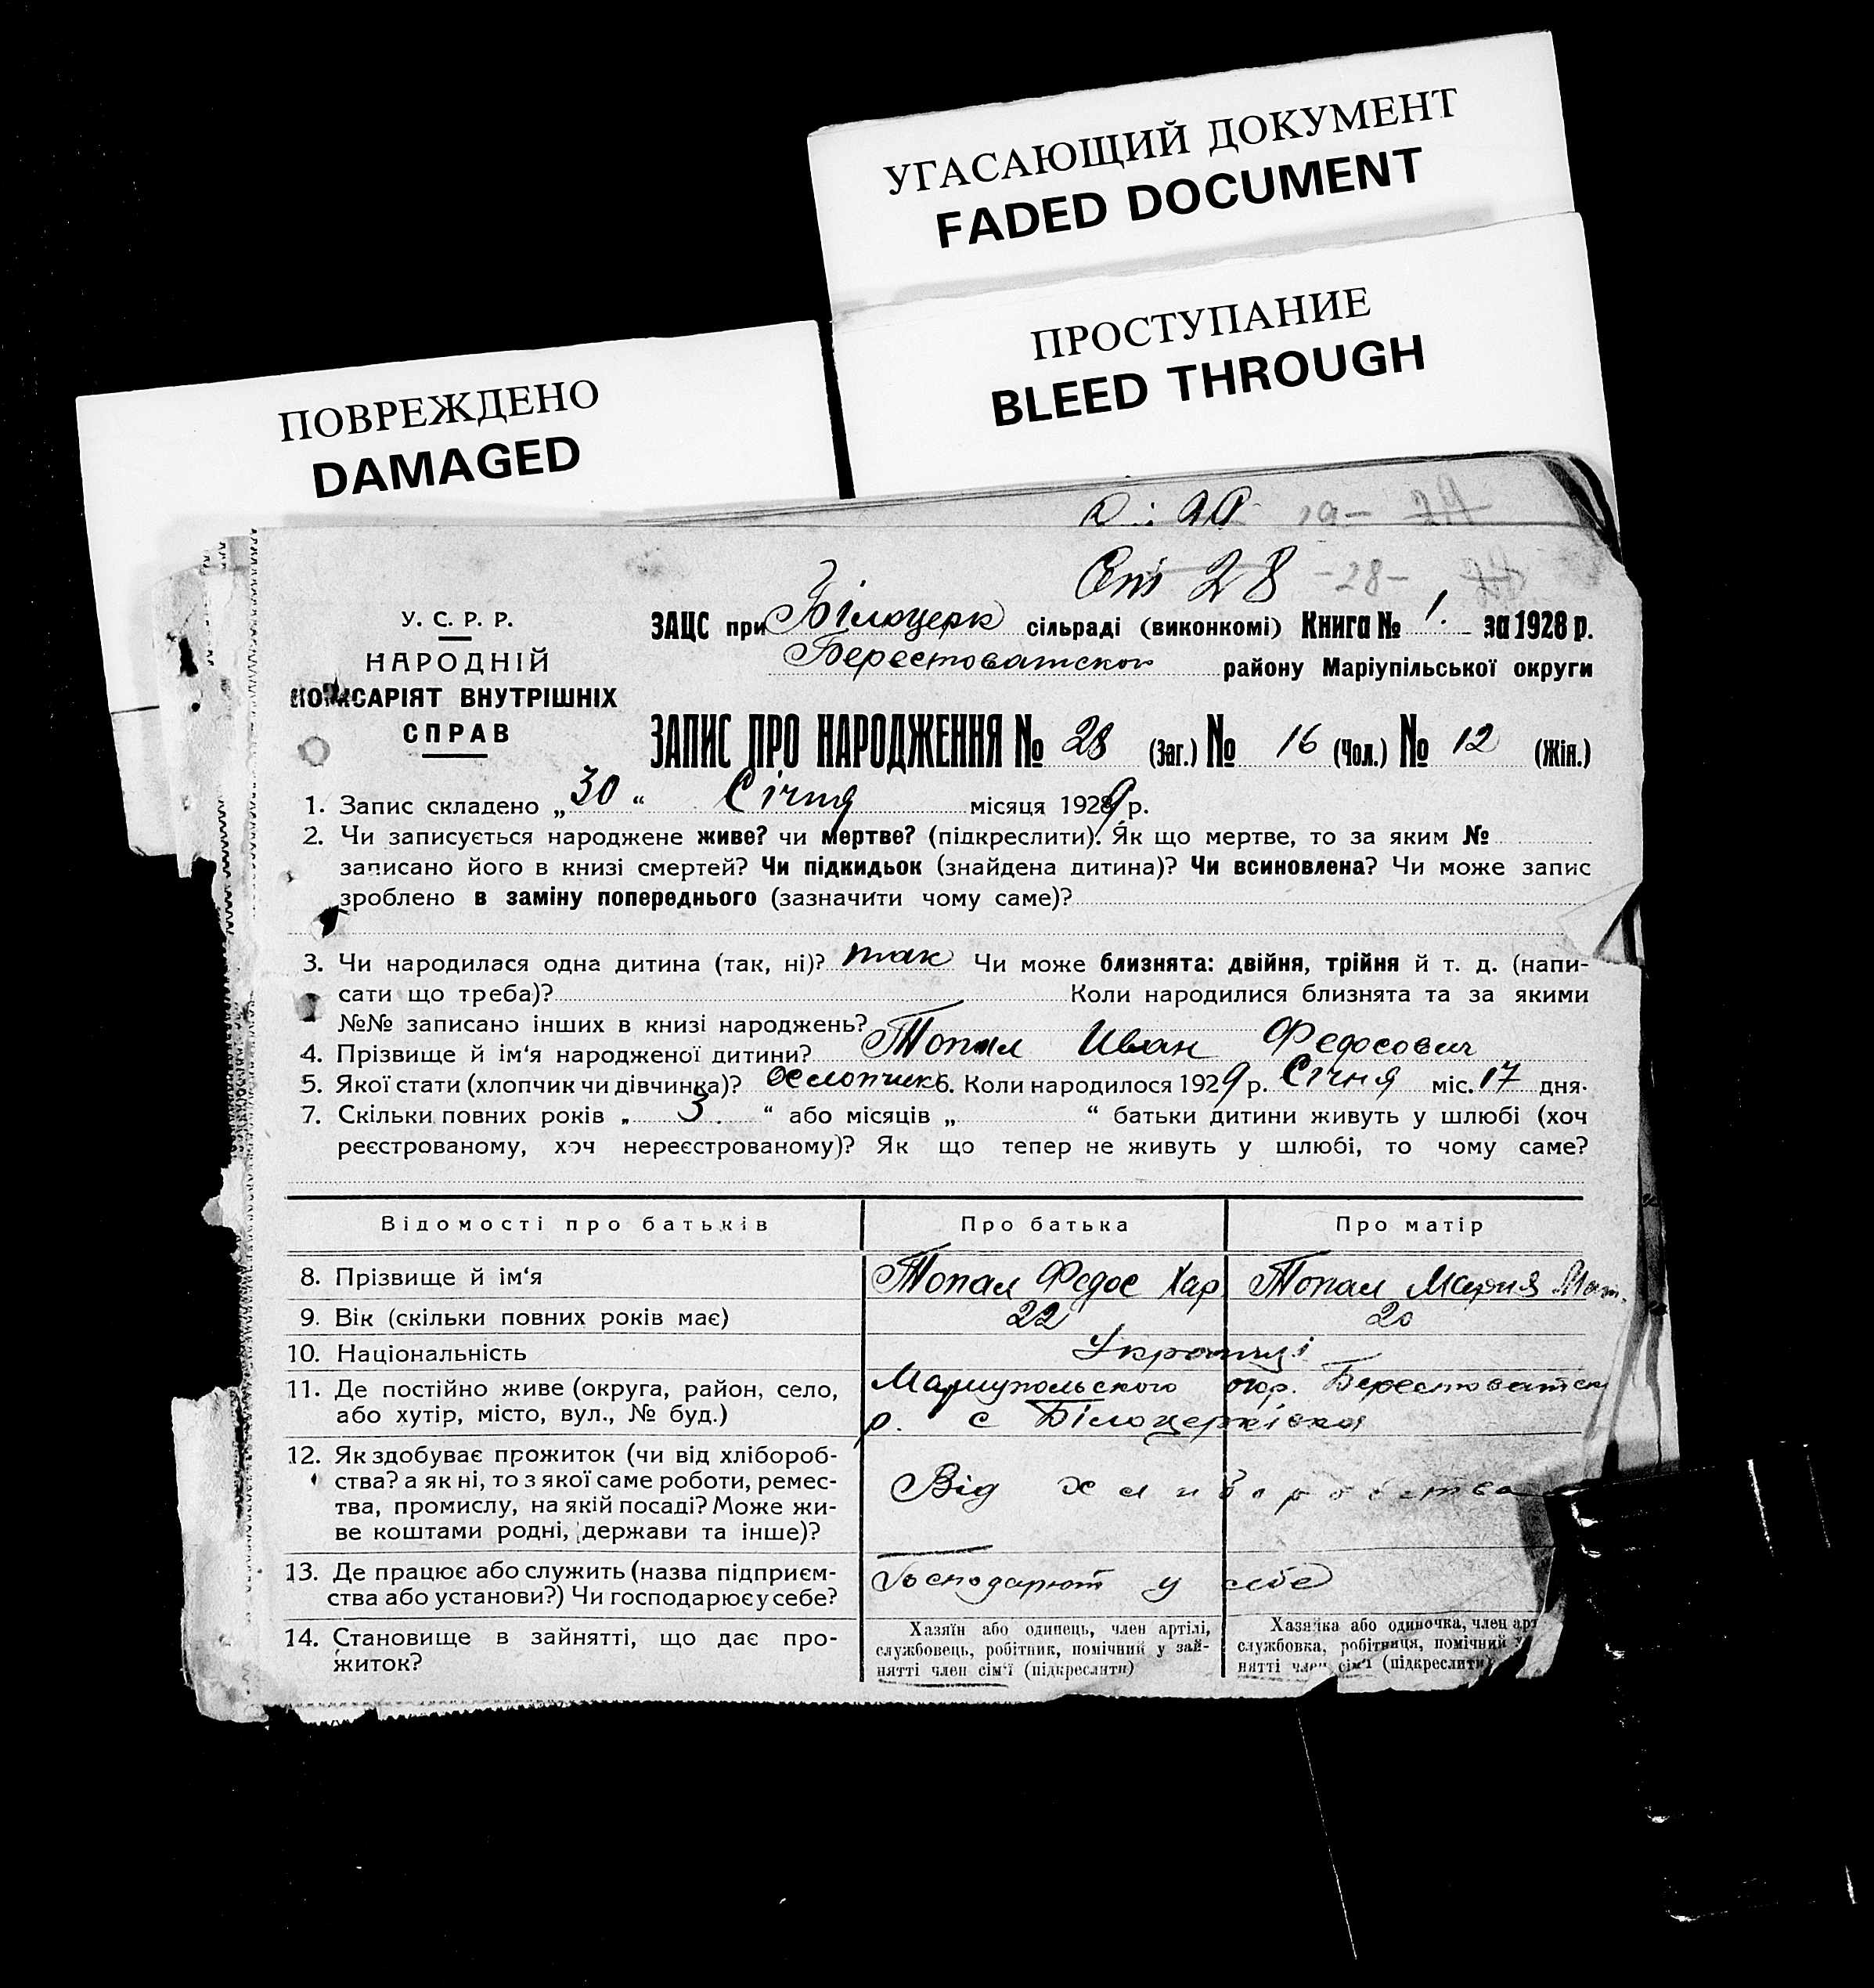 УГАСАЮЩИЙ ДОКУМЕНТ
FADED DOCUMENT
ПРОСТУПАНИЕ
BLEED THROUGH
ПОВРЕЖДЕНО
DAMAGED
19-
28 -28-
У. С. Р. Р.
НАРОДНІЙ
КОМІСАРІЯТ ВНУТРІШНІХ
СПРАВ
ЗАЦС при Білоцерк сільраді (виконкомі) Книга № 1. за 1928 р.
Берестоватского району Маріупільської округи
ЗАПИС ПРО НАРОДЖЕННЯ № 28 (Заг.) № 16 (Чол.) № 12 (Жін.)
1. Запис складено „ 30 “ Січня місяця 1929 р.
2. Чи записується народжене живе? чи мертве? (підкреслити). Як що мертве, то за яким №
записано його в книзі смертей? Чи підкидьок (знайдена дитина)? Чи всиновлена? Чи може запис
зроблено в заміну попереднього (зазначити чому саме)?
3. Чи народилася одна дитина (так, ні)? так Чи може близнята: двійня, трійня й т. д. (напи-
сати що треба)? Коли народилися близнята та за якими
№№ записано інших в книзі народжень?
4. Прізвище й ім‘я народженої дитини? Топал Иван Федосович
5. Якої стати (хлопчик чи дівчинка)? Хлопчик 6. Коли народилося 1929 р. Січня міс. 17 дня.
7. Скільки повних років „ 3 “ або місяців „ “ батьки дитини живуть у шлюбі (хоч
реєстрованому, хоч нереєстрованому)? Як що тепер не живуть у шлюбі, то чому саме?
Відомості про батьків Про батька Про матір
8. Прізвище й ім‘я Топал Федос Хар Топал Мария Мат.
9. Вік (скільки повних років має) 22 20
10. Національність Українці
11. Де постійно живе (округа, район, село, Мариупольского окр. Берестоватск
або хутір, місто, вул., № буд.) р. с Білоцерківка
12. Як здобуває прожиток (чи від хлібороб-
ства? а як ні, то з якої саме роботи, ремес-
тва, промислу, на якій посаді? Може жи- Від хлиборобства
ве коштами родні, держави та інше)?
13. Де працює або служить (назва підприєм- Господарют у себе
ства або установи?) Чи господарює у себе?
14. Становище в зайнятті, що дає про-
житок?
Хазяїн або одинець, член артілі,
службовець, робітник, помічний у зай-
нятті член сім‘ї (підкреслити)
Хазяйка або одиночка, член арт
службовка, робітниця, помічний у
нятті член сім‘ї (підкреслити)